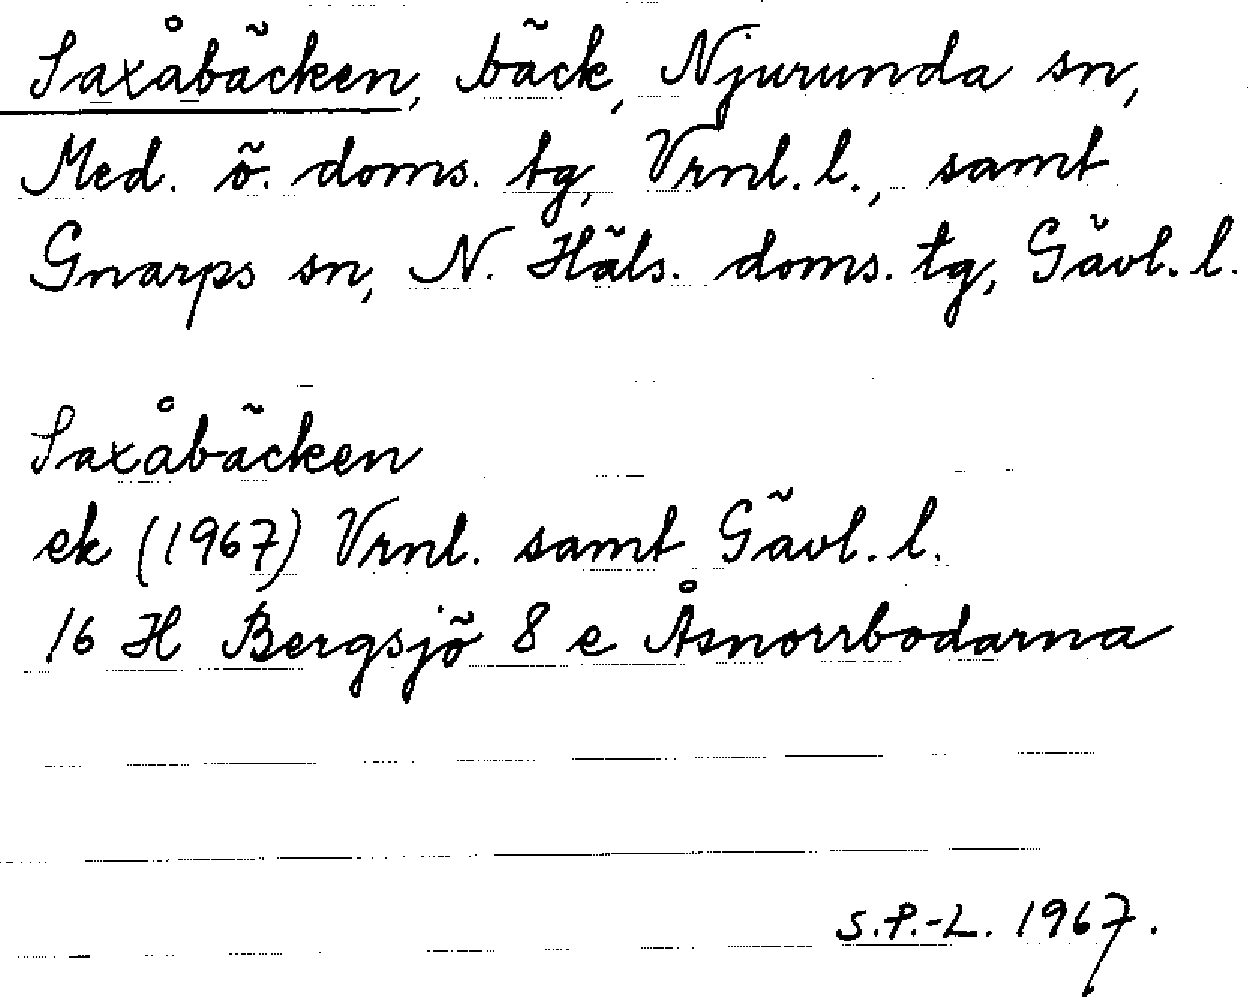 Saxåbäcken, bäck, Njurunda sn,
Med. ö. doms. tg, Vrnl. l., samt
Gnarps sn, N. Häls. doms. tg, Gävl. l.
Saxåbäcken
ek (1967) Vrnl. samt Gävl. l.
16 H Bergsjö 8 e Åsnorrbodarna
S.P.-L. 1967.